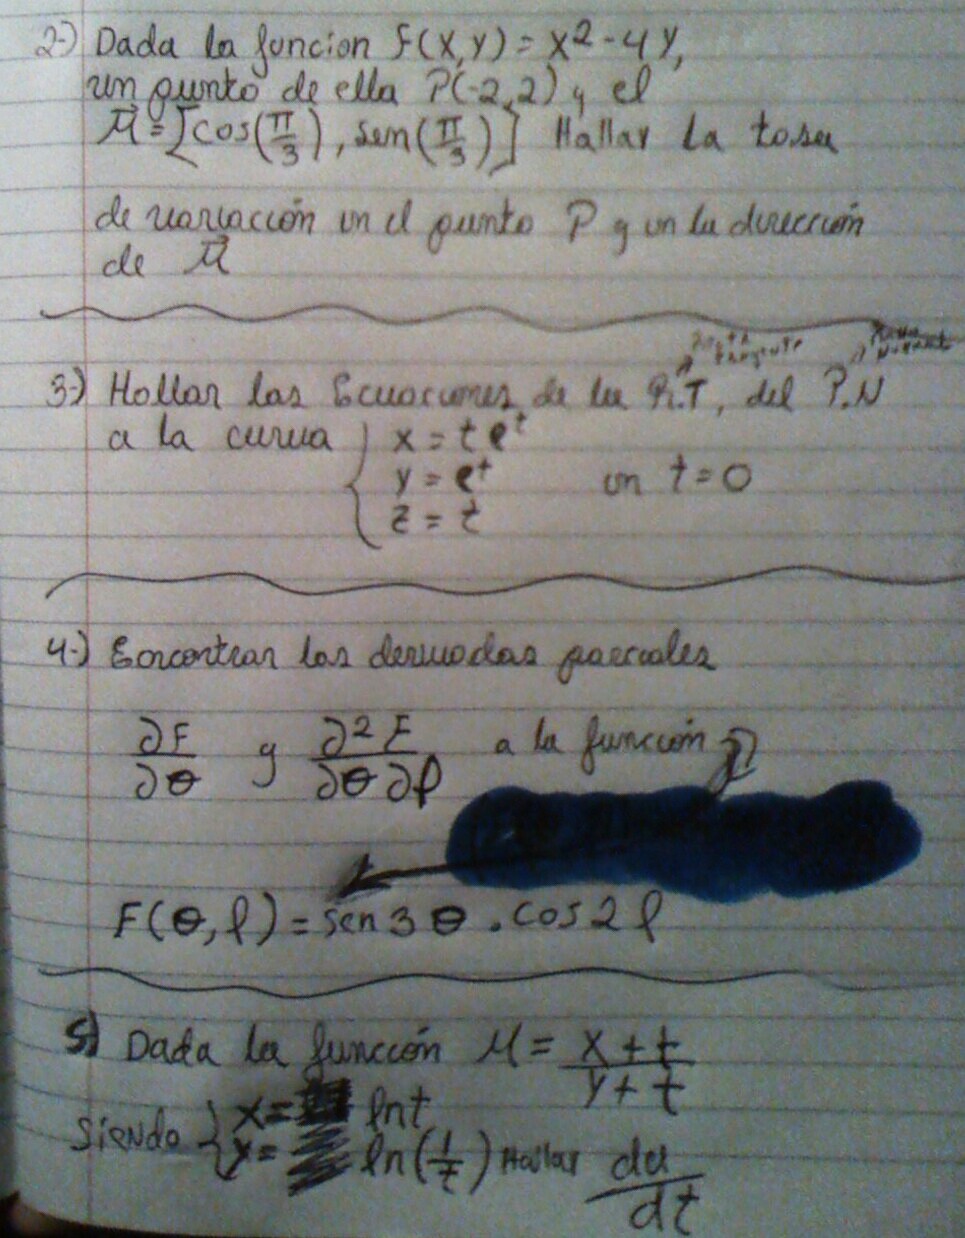 2-) Dada la funcion f(x,y) = x² - 4y,
un punto de ella P(-2,2) y el
μ⃗ = [cos(π/3), sen(π/3)] Hallar la tasa
de variación en el punto P y en la dirección
de μ⃗
Recta tangente
3-) Hallar las Ecuaciones de la R.T, del P.N
a la curva { x = t e^t
y = e^t en t = 0
z = t
4-) Encontrar las derivadas parciales
∂F/∂θ y ∂²F/∂θ∂ρ a la función
F(θ,ρ) = sen 3θ . cos 2ρ
5) Dada la función μ = (x + t)/(y + t)
siendo { x = ln t
y = ln(1/t) Hallar du/dt